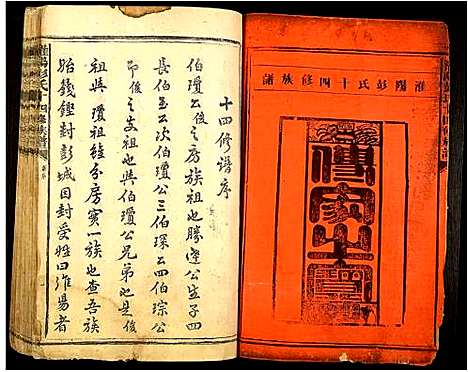 淮陽彭氏十四修族譜
傳家之寶
十四修譜序
伯瓊公後之房族祖也勝達公生子四
長伯玉公次伯瓊公三伯琛公四伯琮公
即後之支祖也與伯瓊公兄弟也是後
祖與瓊祖雖分房實一族也查吾族
始錢鏗封彭城因封受姓曰淮陽者